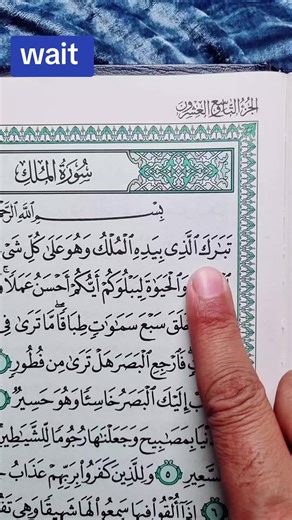 wait
الجزء التاسع والعشرون
سُورَةُ المُلْكِ
بِسْمِ اللَّهِ الرَّحْ
تَبَٰرَكَ ٱلَّذِى بِيَدِهِ ٱلْمُلْكُ وَهُوَ عَلَىٰ كُلِّ شَىْ
ٱلْحَيَوٰةَ لِيَبْلُوَكُمْ أَيُّكُمْ أَحْسَنُ عَمَلًا
خَلَقَ سَبْعَ سَمَٰوَٰتٍ طِبَاقًا مَّا تَرَىٰ فِى
فَٱرْجِعِ ٱلْبَصَرَ هَلْ تَرَىٰ مِن فُطُورٍ
إِلَيْكَ ٱلْبَصَرُ خَاسِئًا وَهُوَ حَسِيرٌ ٤
بِمَصَٰبِيحَ وَجَعَلْنَٰهَا رُجُومًا لِّلشَّيَٰطِينِ
ٱلسَّعِيرِ ٥ وَلِلَّذِينَ كَفَرُوا۟ بِرَبِّهِمْ عَذَابُ
٦ إِذَآ أُلْقُوا۟ فِيهَا سَمِعُوا۟ لَهَا شَهِيقًا وَهِىَ